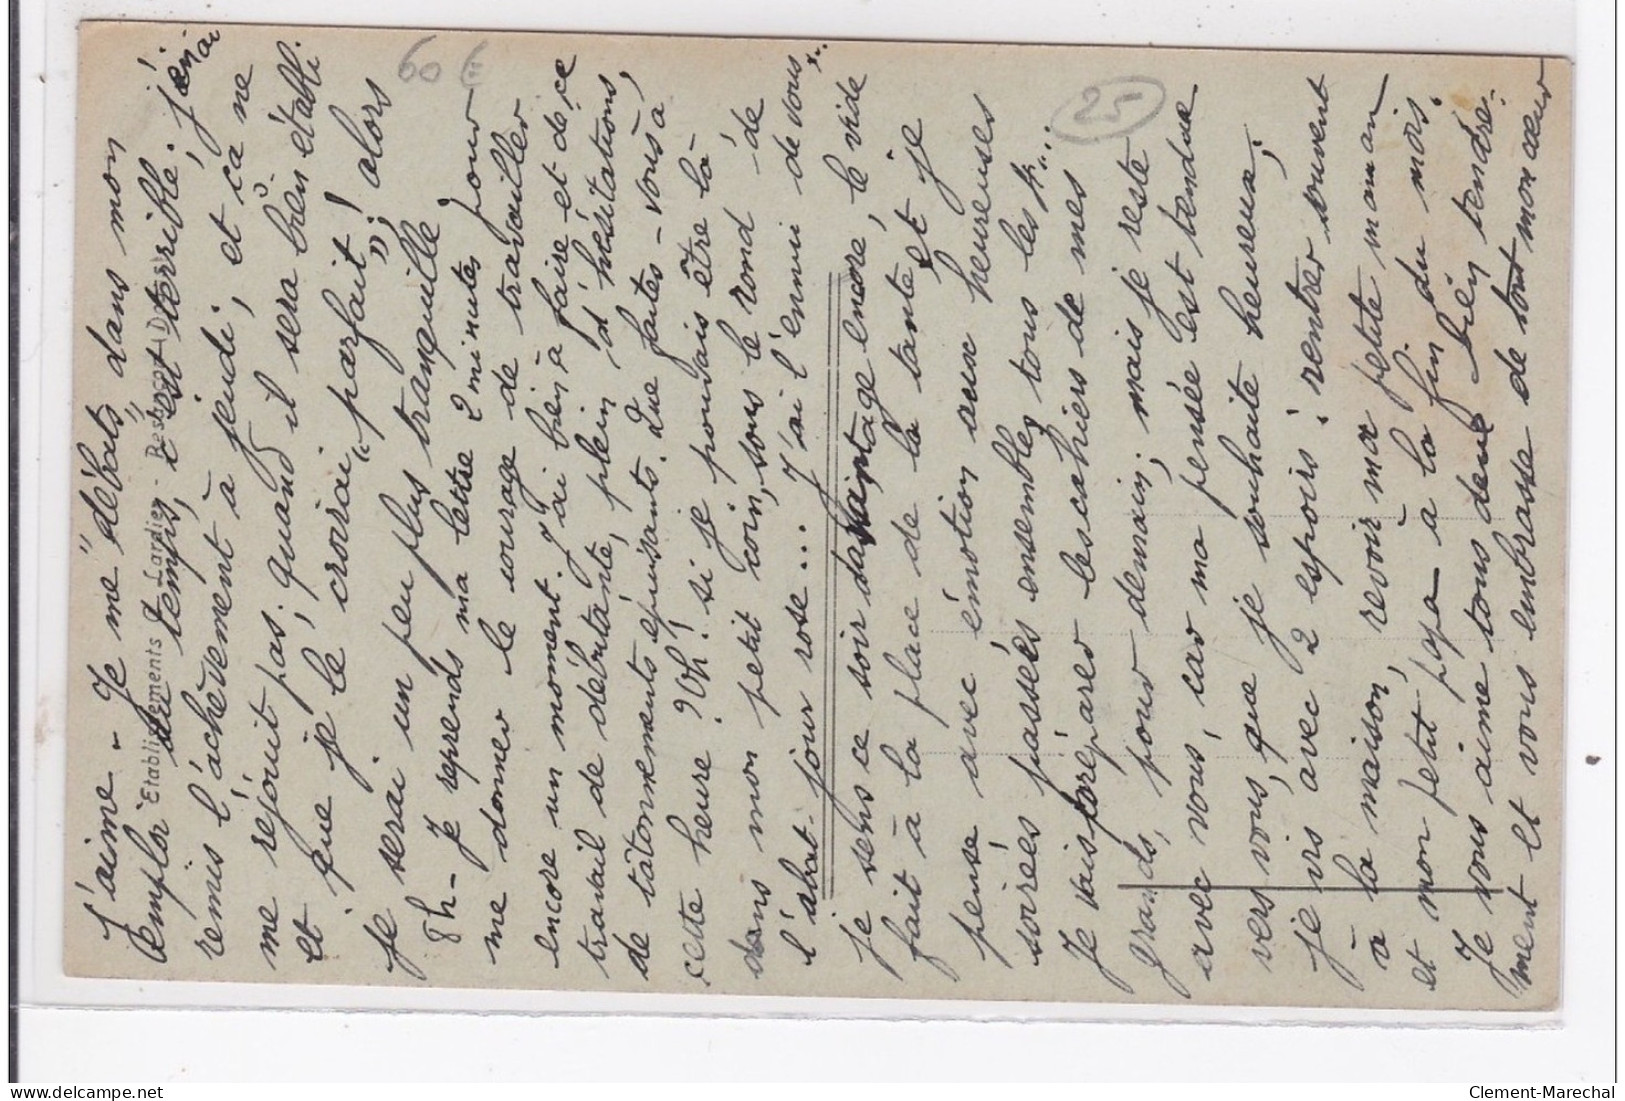 J'aime - Je me "débats" dans mon
emploi du temps, c'est terrible. J'en ai
remis l'achèvement à jeudi, et ça ne
me réjouit pas. quand il sera bien établi
et que je le croirai "parfait"! alors
je serai un peu plus tranquille.
8h - Je reprends ma lettre 2 minutes pour
me donner le courage de travailler
encore un moment. J'ai bien à faire et de ce
travail de débutante, plein d'hésitations,
de tâtonnements épuisants. Que faites-vous à
cette heure? Oh! si je pouvais être là
dans mon petit coin, sous le rond de
l'abat-jour rose... J'ai l'ennui de vous...
je sens ce soir davantage encore, le vide
fait à la place de la tante et je
pense avec émotion aux heureuses
soirées passées ensemble, tous les 4...
Je vais préparer les cahiers de mes
grands, pour demain; mais je reste
avec vous, car ma pensée est tendue
vers vous, que je souhaite heureux;
je vis avec 2 espoirs: rentrer souvent
à la maison, revoir ma petite maman
et mon petit papa à la fin du mois.
Je vous aime tous deux bien tendre-
ment et vous embrasse de tout mon cœur
Etablissements Lardier - Besançon (Doubs)
60 €
25
Clement-Marechal